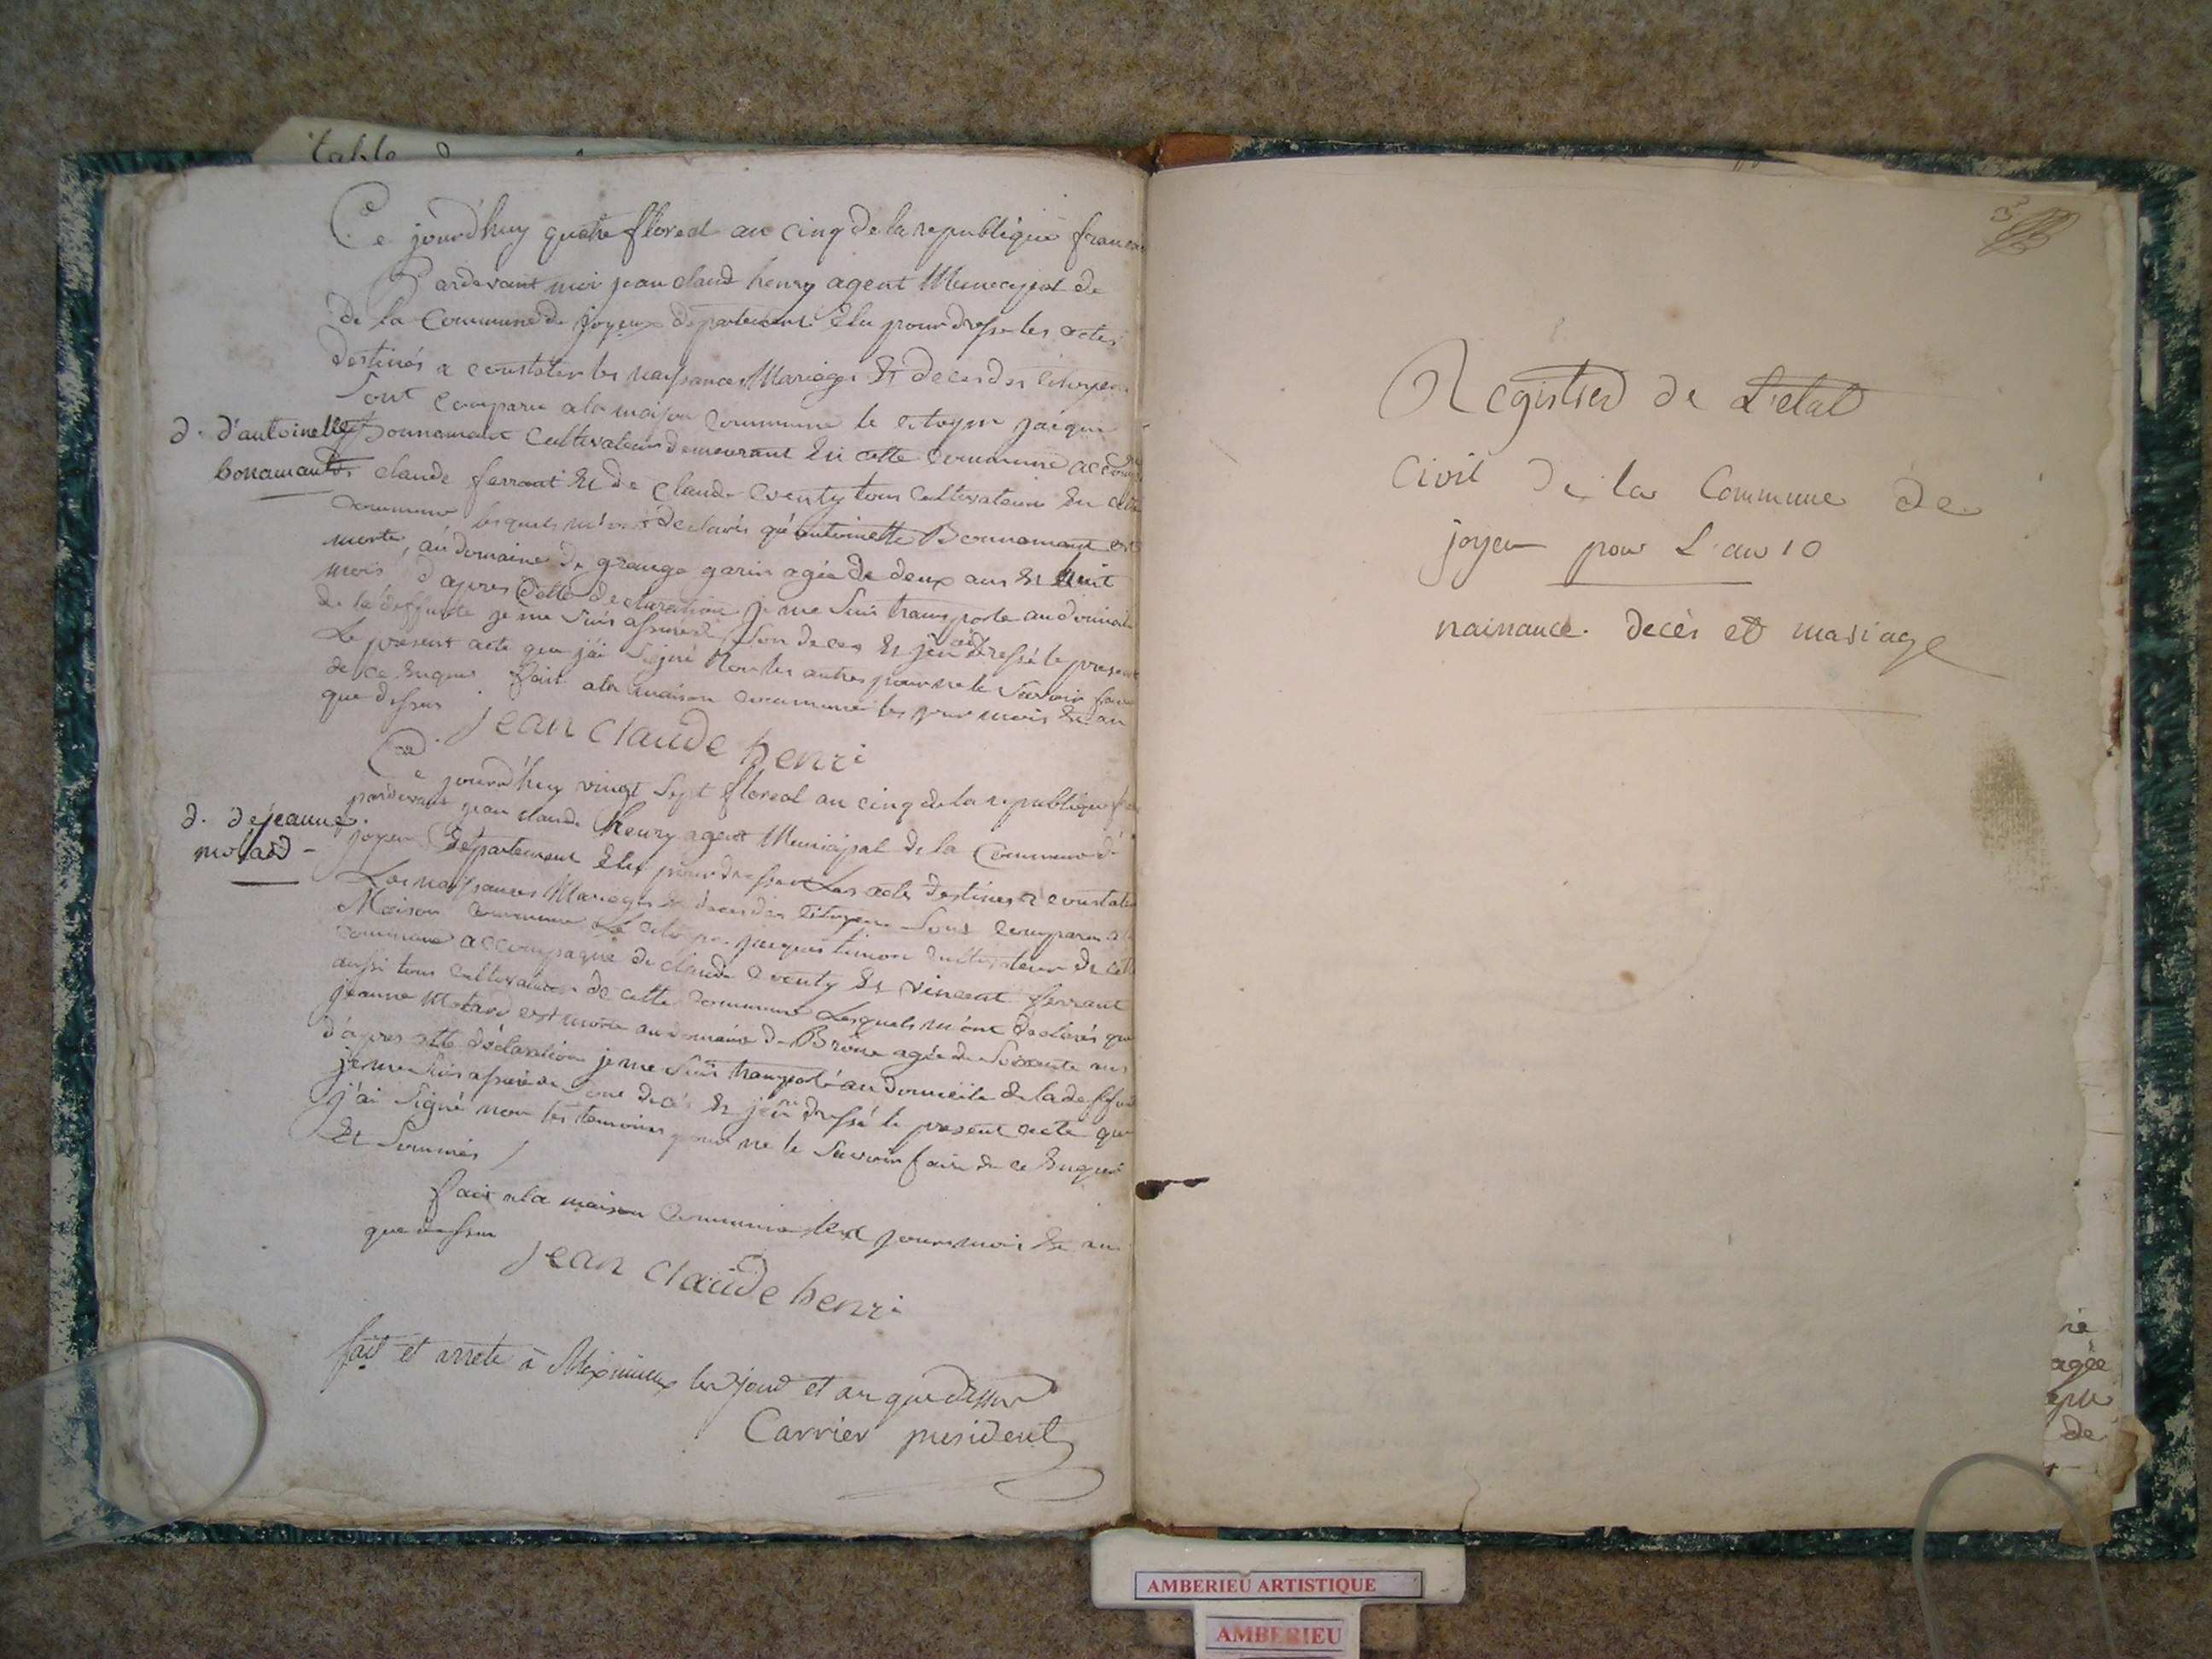 table
Ce jourd'huy quatre floreal an cinq de la republique
Pardevant moi jean claud henry agent Municipal de
de la Commune de joyeux departement Elu pour dresse les actes
destinés a constater les naissances Mariages Et deces des citoyens
Sont comparu a la maison commune le citoyen jacque
d. d'antoinette
bonamant
Bonnamant Cultivateur demeurant En cette Commune
claude ferrant Et de claude Coenty tous Cultivateurs En cette
commune lesquels m'ont declarés qu'antoinette Bonnamant est
morte, au domaine de grange garin agée de deux ans Et huit
mois, d'apres Cette declaration je me suis transporte au domicile
de la deffunte je me suis assuré de son deces Et j'en ai dressé le present
Le present acte que j'ai signé Non les autres pour ne le savoir faire
de ce Enquis fait a la maison commune les jour mois Et an
que dessus
jean claude henri
Ce jourd'huy vingt Sept floreal an cinq de la republique
pardevant jean claude henry agent Municipal de la Commune de
d. de jeanne
motard
joyeux departement Elu pour dresser Les acte destines a constater
Les naissances Mariages Et deces des Citoyens Sont comparu a la
Maison commune Le citoyen jacques timon cultivateur de cette
commune accompagné de claude Coenty Et vincent ferrant
aussi tous cultivateurs de cette commune Lesquels m'ont declarés que
jeanne Motard est morte au domaine de Brône agée de Soixante ans
d'apres cette déclaration je me suis transporté au domicile de la deffunte
je me suis assuré de Son decés Et j'en ai dressé le present acte que
j'ai Signé non les temoins pour ne le Savoir faire de ce Enquis
Et Sommés
fait a la maison commune les jour mois Et an
que dessus
jean claude henri
fait et arrete à Meximieux les jour et an que dessus
Carrier president
Registres de L'etat
Civil de la Commune de
joyeu pour L'an 10
naissance. decès et mariage
née
agée
de
AMBERIEU ARTISTIQUE
AMBERIEU